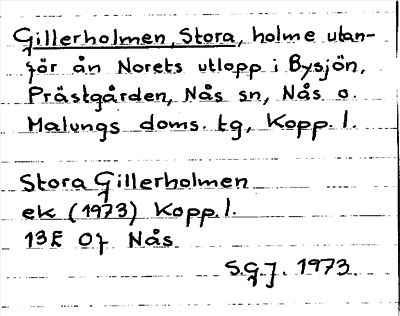 Gillerholmen, Stora, holme utan-
för ån Norets utlopp i Bysjön,
Prästgården, Nås sn, Nås o.
Malungs doms. tg, Kopp. l.
Stora Gillerholmen
ek (1973) Kopp. l.
13E 0f Nås
S.G.J. 1973.